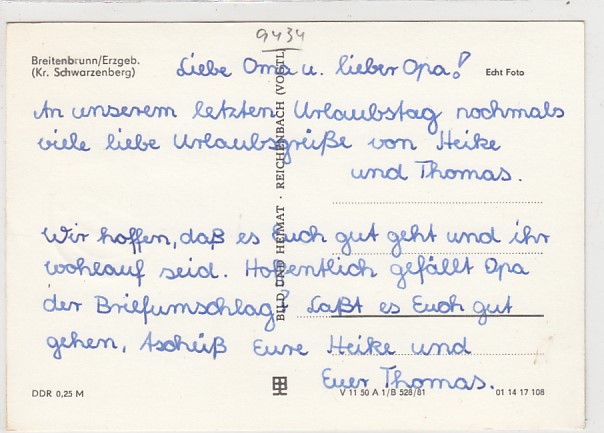 9434
Breitenbrunn/Erzgeb.
(Kr. Schwarzenberg)
Liebe Oma u. lieber Opa!
Echt Foto
An unserem letzten Urlaubstag nochmals
viele liebe Urlaubsgrüße von Heike
und Thomas.
Wir hoffen, daß es Euch gut geht und ihr
wohlauf seid. Hoffentlich gefällt Opa
der Briefumschlag? Laßt es Euch gut
gehen, tschüß Eure Heike und
Euer Thomas.
BILD UND HEIMAT · REICHENBACH (VOGTL)
DDR 0,25 M
V 11 50 A 1/B 528/81
01 14 17 108